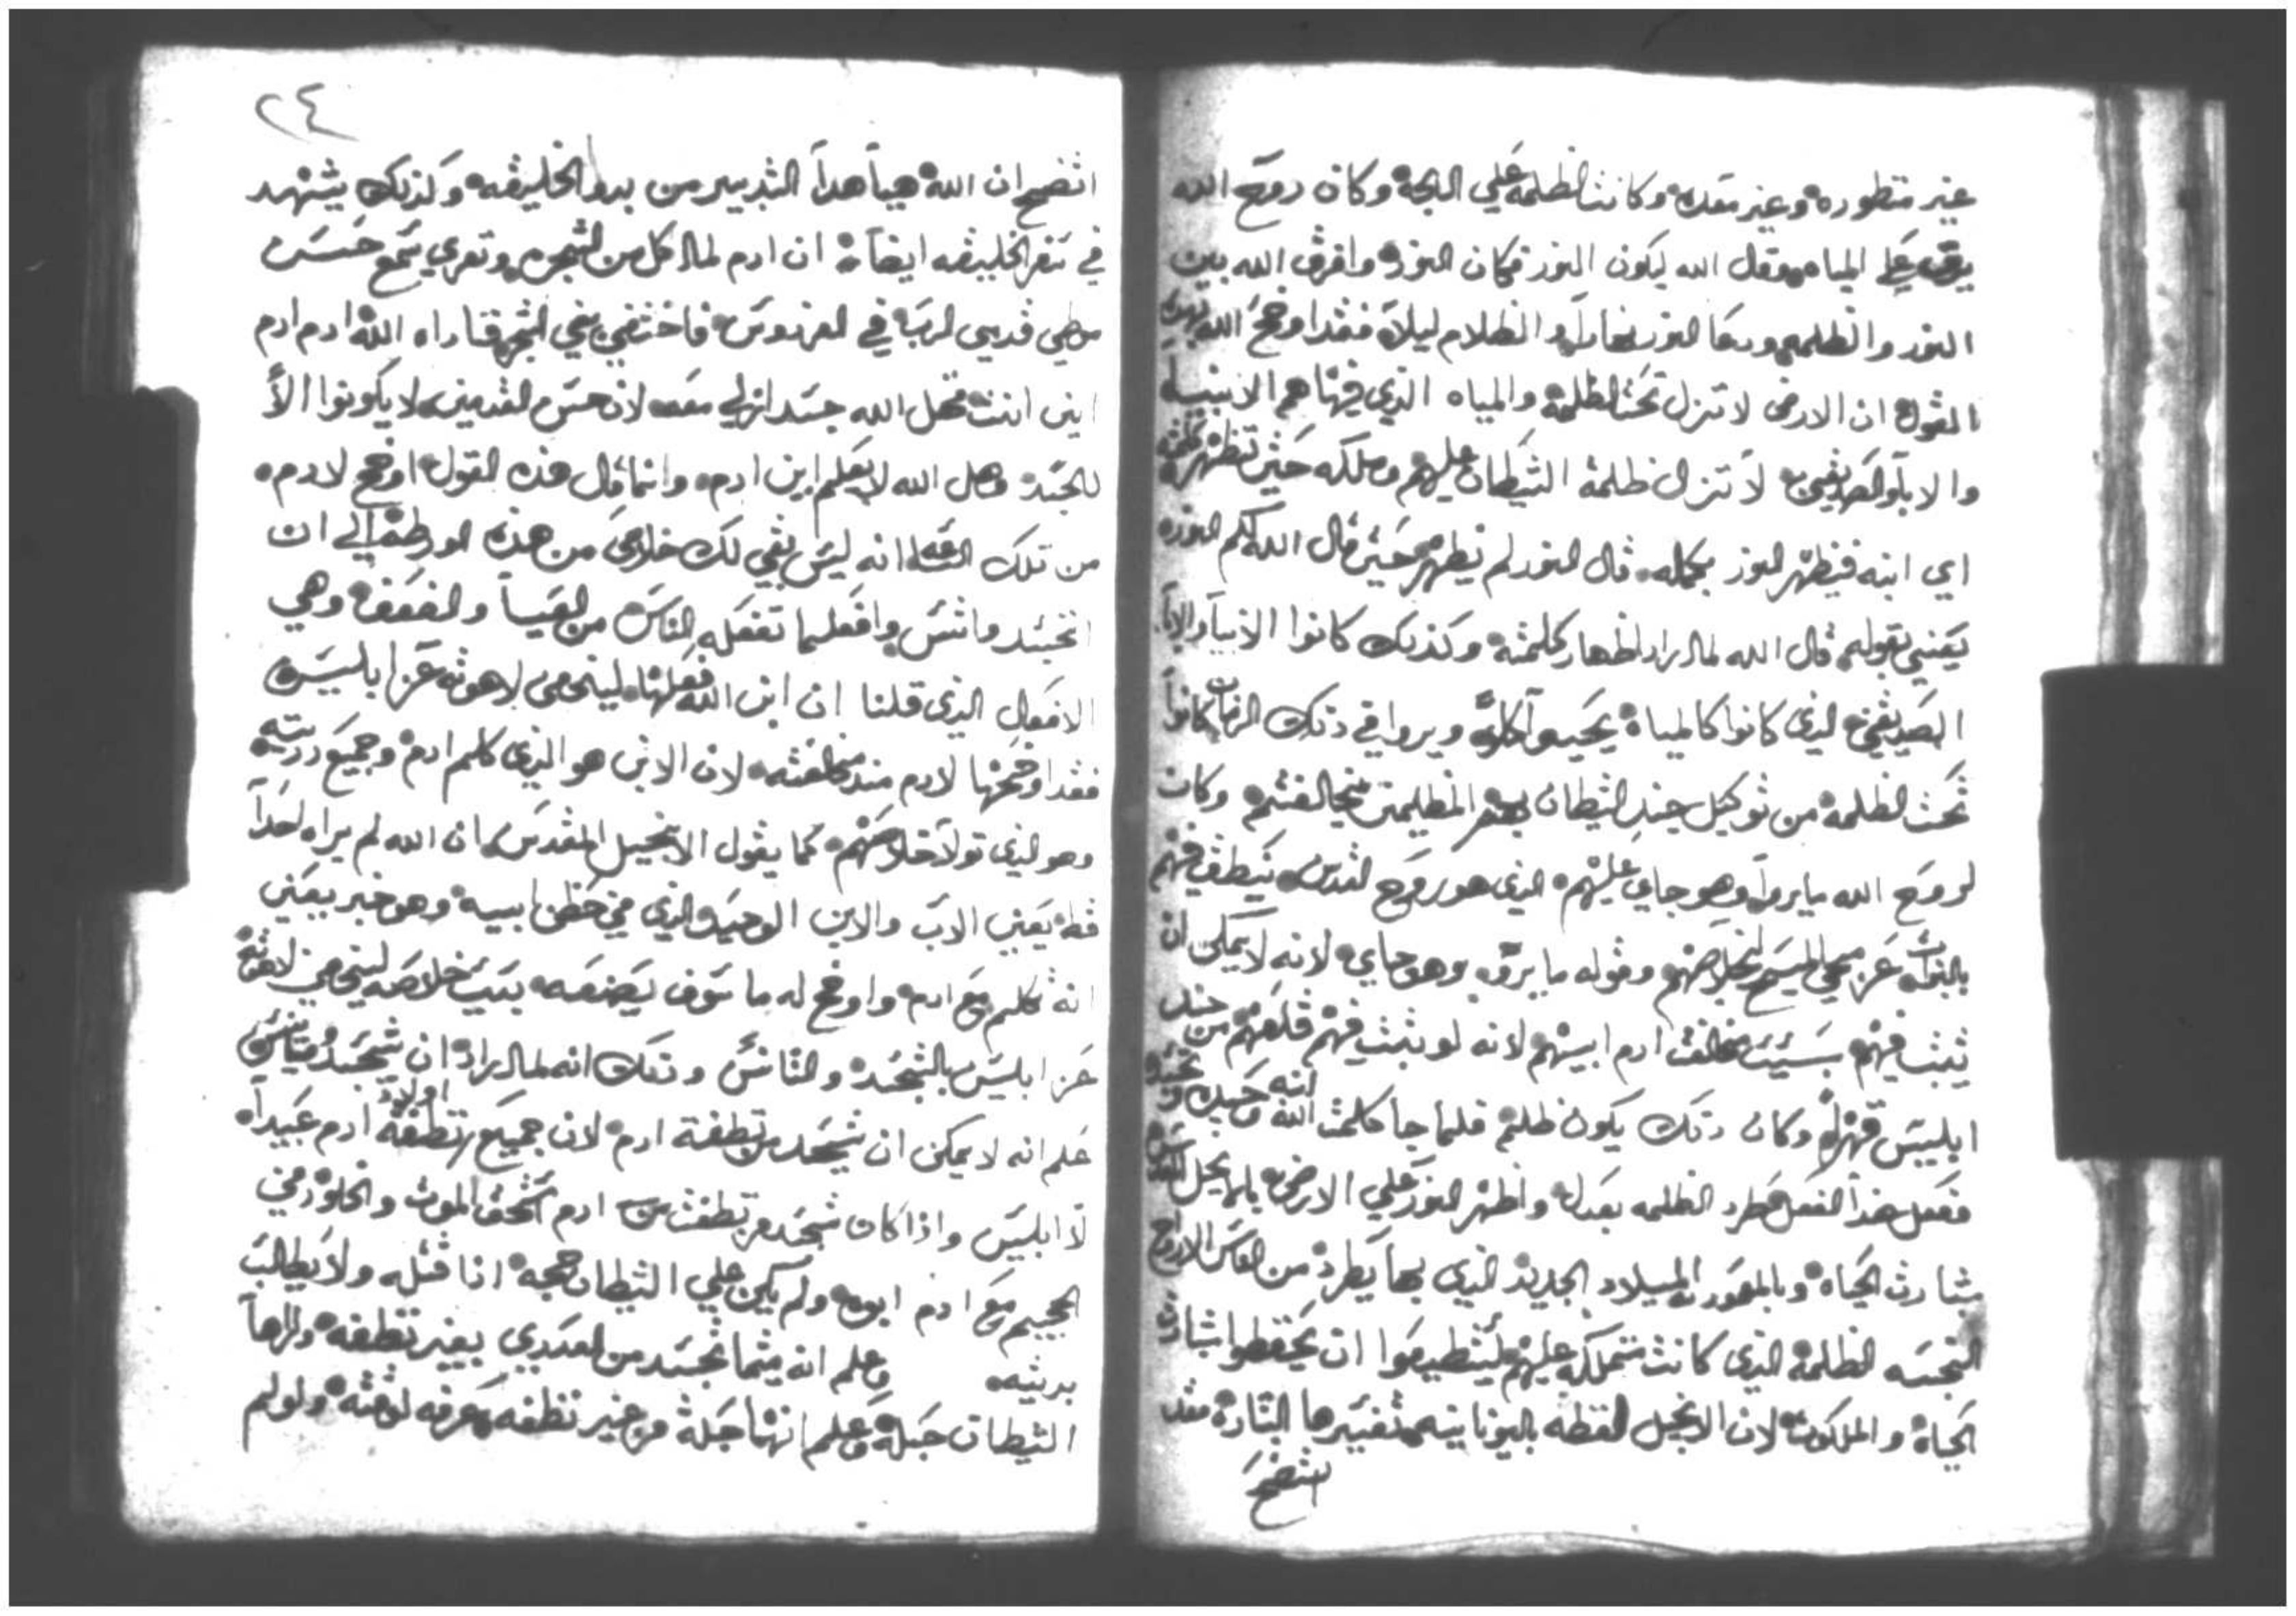 غير منظوره وغير متعده وكانت الظلمه علي اللجة وكان روح الله
يرف علي المياه وقال الله ليكون النور فكان النور وافرق الله بين
النور والظلمه ودعا النور نهاراً والظلام ليلاً فقد اوضح الله بهدا
القول ان الارض لا تزل تحت الظلمة والمياه الذي فيها هم الانبيا
والابا والصديقين لا تزل ظلمة الشيطان عليهم وملكه حتي تظهر كلمته
اي ابنه فيظهر النور بمجمله قال النور لم يظهر حتي قال الله كلم النور
يعني بقوله قال الله لما اراد اظهار كلمته وكذلك كانوا الانبيا والابا
الصديقين الذي كانوا كالمياه ويروا في ذلك الزمان كانوا
تحت الظلمة من توكيل جند الشيطان المظلمين وكان
لروح الله ما يروا وهو جاي عليهم الذي هو روح القدس ينطق فيهم
بالنبوات عن مجي المسيح لخلاصهم وقوله ما يروه وهو جاي لانه لا يمكن ان
يثبت فيهم بسبب مخالفة ادم ابيهم لانه لو يثبت فيهم قلعهم من جند
ابليس قهراً وكان ذلك يكون ظلم فلما جا كلمت الله ابنه وحيده وتجسد
ففعل هذا الفعل فطرد الظلمه بعدل واظهر النور علي الارض بالانجيل المقدس
بشارت الحياه وبالمعوديه الميلاد الجديد الذي بها يطرد من الناس الارواح
النجسه الظلمة الذي كانت متملكه عليهم ليستطيعوا ان يحفظوا بشارة
الحياة والملكوت لان الانجيل لفظه باليونانيه تفسيرها البشاره فقد
اتضح
٢٤
اتضح ان الله هيأ هدا التدبير من بدو الخليقه وكذلك يشهد
في سفر الخليقه ايضاً ان ادم لما اكل من الشجره وتعري سمع حس
وطي قدمي الرب في الفردوس فاختفي في الشجر فناداه الله ادم ادم
اين انت فهل الله جسد ازلي معه لان حس القدمين لا يكونوا الا
للجسد وهل الله لا يعلم اين ادم وانما قال هذه القول اوضح لادم
من تلك الساعه انه ليس بقي لك خلاص من هذه الورطه الي ان
اتجسد واتنس وافعل ما تفعله الناس من العيا والضعف وهي
الافعال الذي قلنا ان ابن الله فعلها ليخفي لاهوته عن ابليس
فقد اوضحها لادم مند مخالفته لان الابن هو الذي كلم ادم وجميع دريته
وهو الذي تولا خلاصهم كما يقول الانجيل المقدس ان الله لم يراه احداً
قط يعني الاب والابن الوحيد الذي في حضن ابيه وهو خبر يعني
انه تكلم مع ادم واوضح له ما سوف يصنعه بسبب خلاصه ليخفي لاهوته
عن ابليس بالتجسد والتانس وذلك انه لما اراد ان يتجسد ويتانس
علم انه لا يمكن ان يتجسد من نطفة ادم لان جميع نطفة اولاد ادم عبيداً
لابليس واذا كان يتجسد من نطفت ادم استحق الموت والخلود في
الجحيم مع ادم ابوه ولم يكن علي الشيطان حجة اذا قتله ولا يطالب
بديته وعلم انه متما تجسد من العدري بغير نطفه والها
الشيطان حبله وعلم انها حبلة من غير نطفه يعرف لاهوته ولو لم